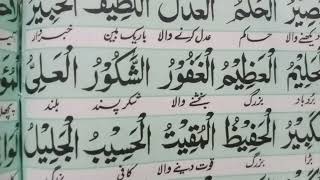 الحَكَمُ العَدْلُ اللَّطِيفُ الخَبِيرُ
حاکم عدل کرنے والا باریک بین
الحَلِيمُ العَظِيمُ الغَفُورُ الشَّكُورُ العَلِيُّ
بردبار بزرگ بخشنے والا شکر پسند بلند
الكَبِيرُ الحَفِيظُ المُقِيتُ الحَسِيبُ الجَلِيلُ
بڑا قوت دینے والا کافی بزرگ